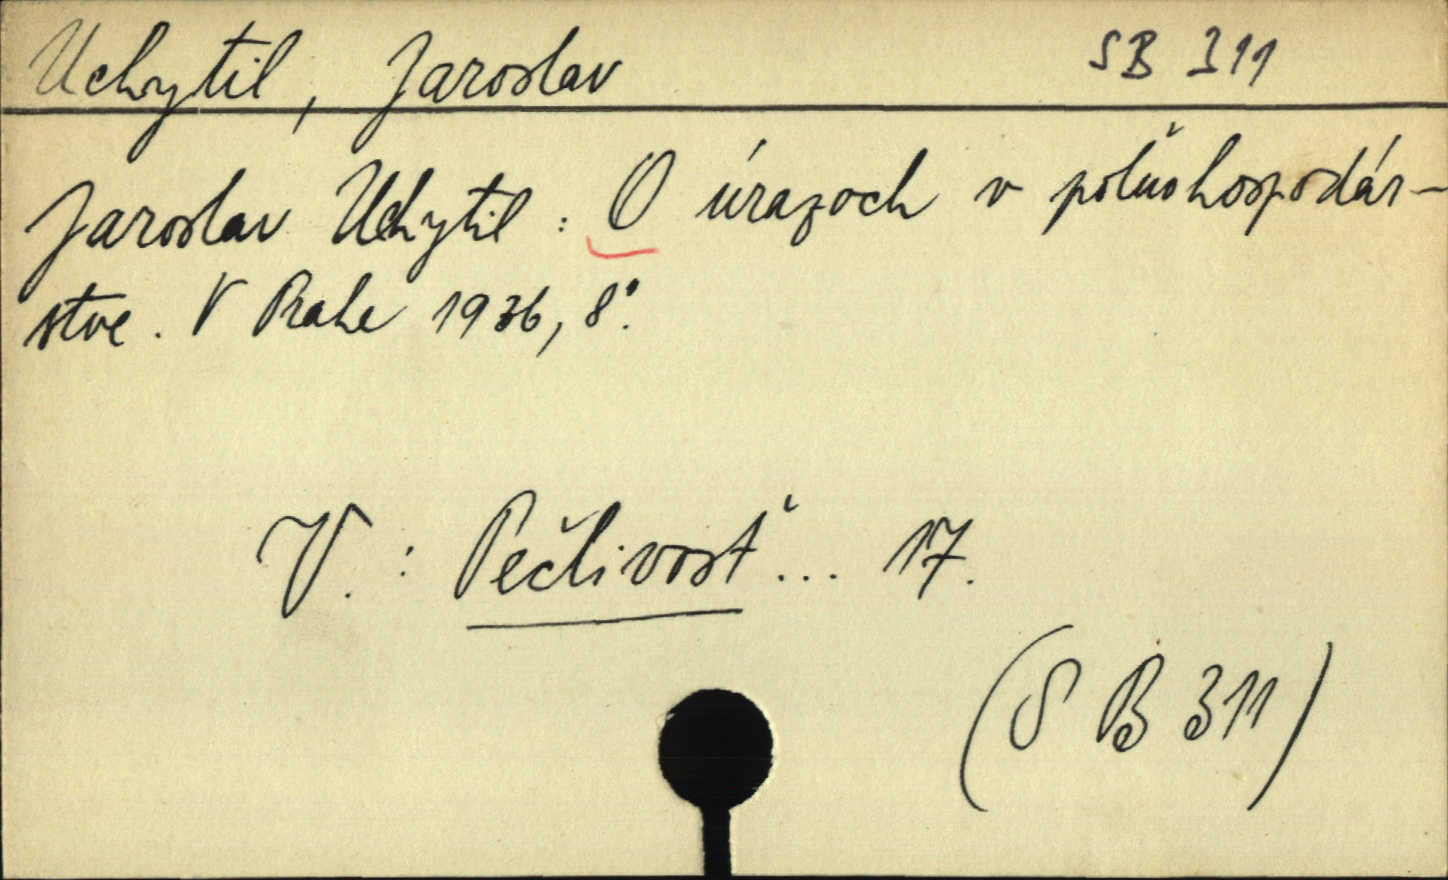 Uchytil, Jaroslav SB 311
Jaroslav Uchytil: O úrazoch v poľnohospodár-
stve. V Prahe 1936, 8°.
V.: Pečlivosť... 17.
(S B 311)